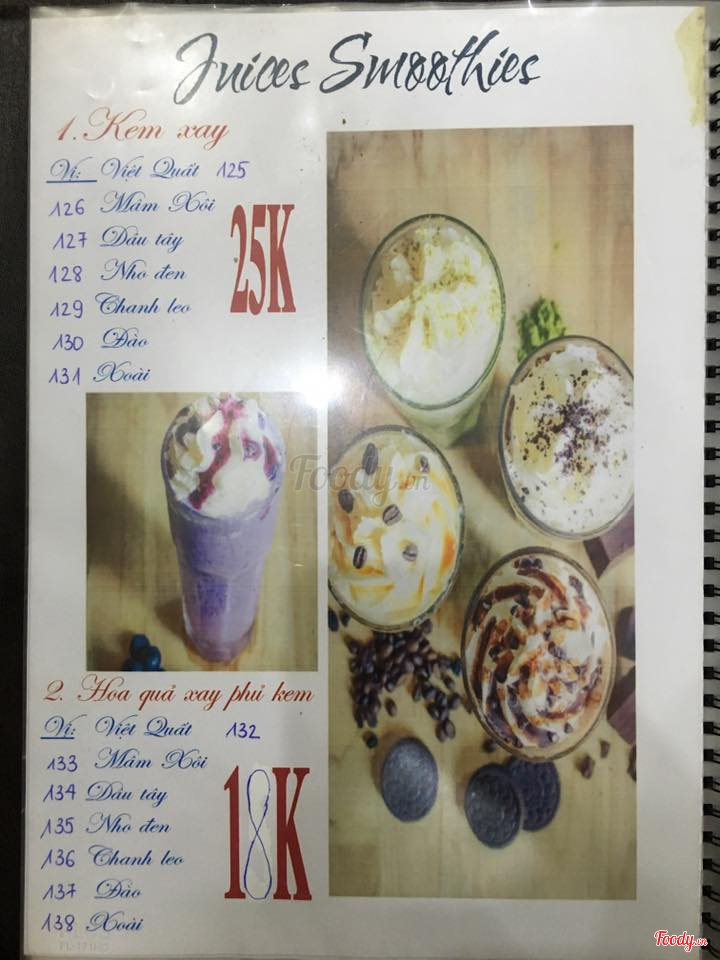 Juices Smoothies
1. Kem xay
Vị: Việt Quất 125
126 Mâm Xôi
127 Dâu tây
128 Nho đen
129 Chanh leo
130 Đào
131 Xoài
25K
Foody.vn
2. Hoa quả xay phủ kem
Vị: Việt Quất 132
133 Mâm Xôi
134 Dâu tây
135 Nho đen
136 Chanh leo
137 Đào
138 Xoài
18K
Foody.vn